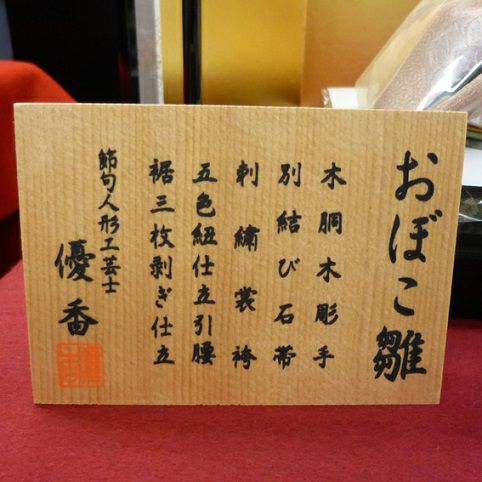 おぼこ雛
木胴木彫手
別結び石帯
刺繍裳袴
五色紐仕立引腰
裾三枚剥ぎ仕立
節句人形工芸士
優香